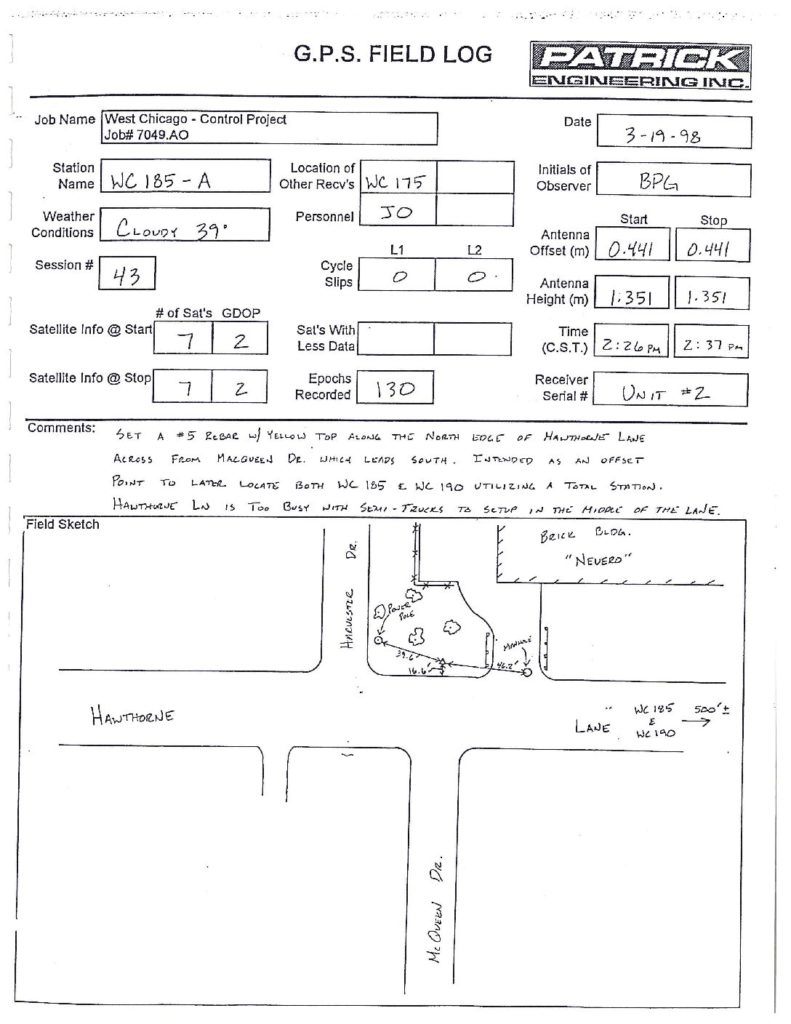 G.P.S. FIELD LOG
PATRICK
ENGINEERING INC.
Job Name West Chicago - Control Project
Job# 7049.AO
Date 3-19-98
Station Name WC 185-A
Location of Other Recv's WC 175
Initials of Observer BPG
Weather Conditions CLOUDY 39°
Personnel JO
Start Stop
Antenna Offset (m) 0.441 0.441
Session # 43
L1 L2
Cycle Slips 0 0
Antenna Height (m) 1.351 1.351
# of Sat's GDOP
Satellite Info @ Start 7 2
Sat's With Less Data
Time (C.S.T.) 2:26 PM 2:37 PM
Satellite Info @ Stop 7 2
Epochs Recorded 130
Receiver Serial # UNIT #2
Comments:
SET A #5 REBAR W/ YELLOW TOP ALONG THE NORTH EDGE OF HAWTHORNE LANE
ACROSS FROM MACQUEEN DR. WHICH LEADS SOUTH. INTENDED AS AN OFFSET
POINT TO LATER LOCATE BOTH WC 185 & WC 190 UTILIZING A TOTAL STATION.
HAWTHORNE LN IS TOO BUSY WITH SEMI-TRUCKS TO SETUP IN THE MIDDLE OF THE LANE.
Field Sketch
BRICK BLDG.
"NEUERO"
HARVESTER DR.
POWER POLE
MANHOLE
39.6'
16.6'
46.2'
HAWTHORNE
LANE
WC 185
&
WC 190
500'±
McQUEEN DR.